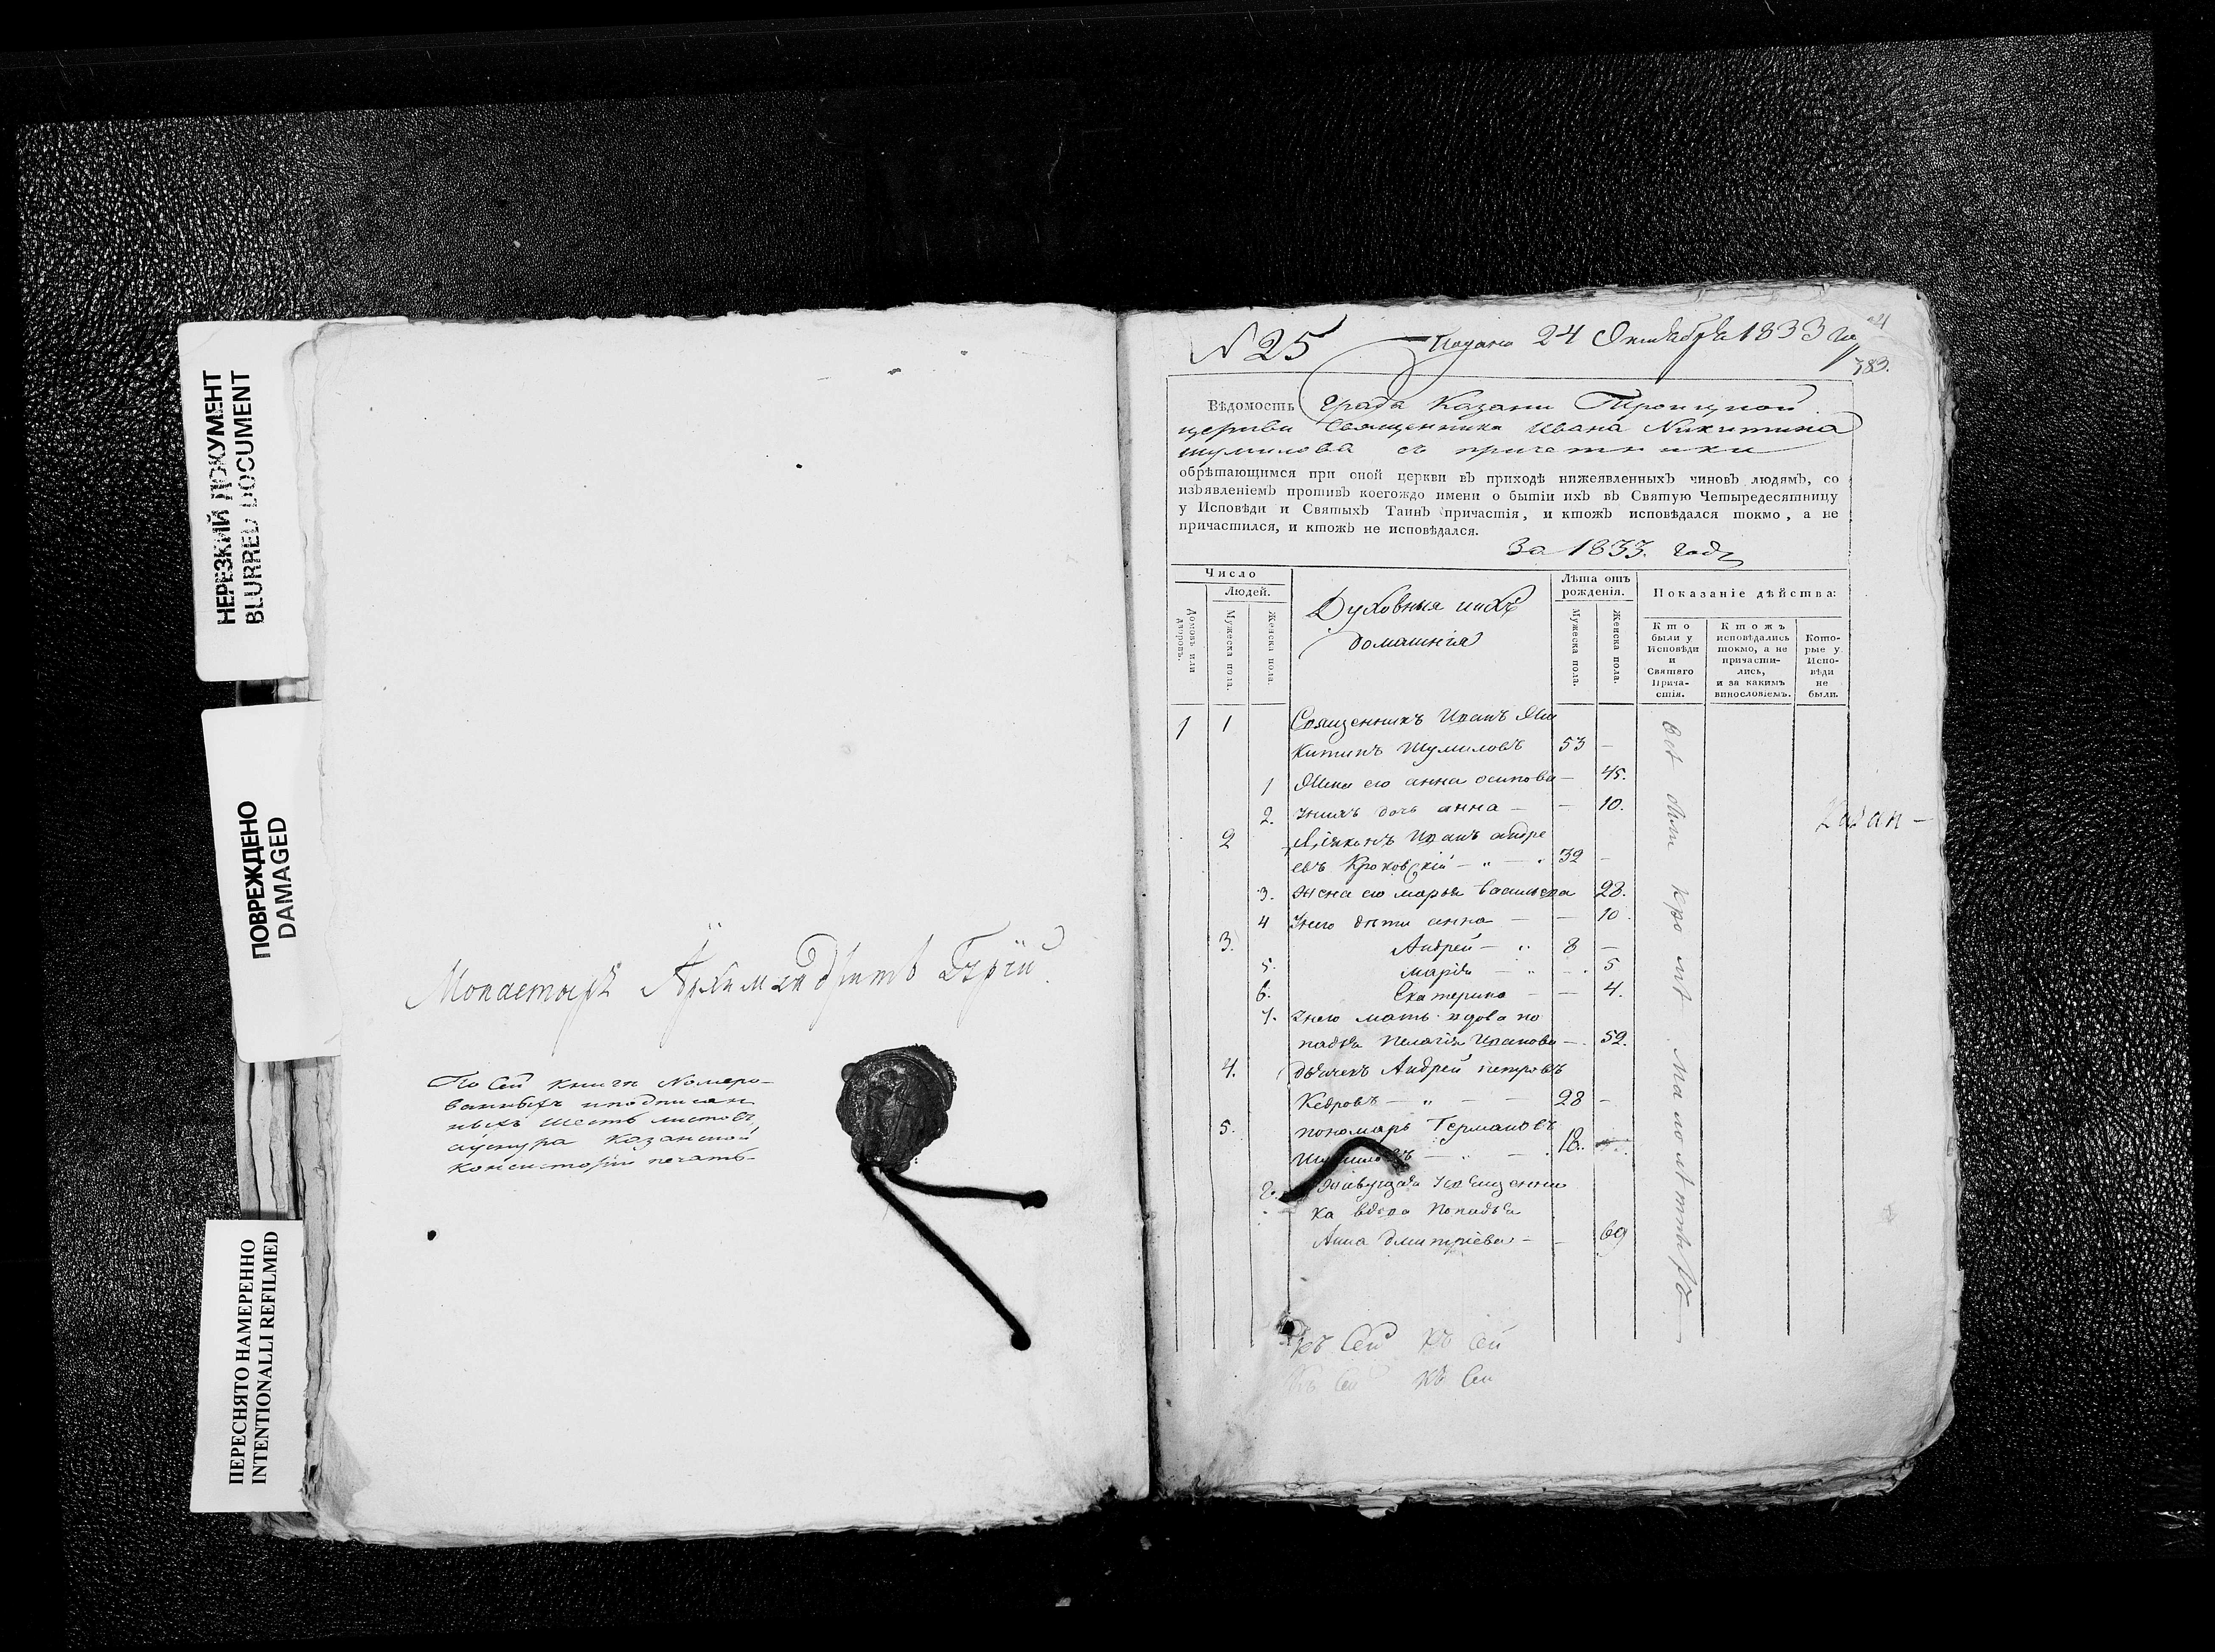 НЕРЕЗКИЙ ДОКУМЕНТ
BLURRED DOCUMENT
ПОВРЕЖДЕНО
DAMAGED
ПЕРЕСНЯТО НАМЕРЕННО
INTENTIONALLI REFILMED
Монастырѣ Архимандритъ
По сей книги Номеро-
ванныхъ и подписан
ныхъ шесть листовъ
Казанской
Консисторіи печать
N 25
Подана 24 Октября 1833 го
783.
Вѣдомость града Казани Троицкой
церкви Священника Ивана Никитина
шумилова съ причетники
обрѣтающимся при оной церкви въ приходѣ нижеявленныхъ чиновъ людямъ, со
изъявленіемъ противъ коегождо имени о бытіи ихъ въ Святую Четыредесятницу
у Исповѣди и Святыхъ Таинъ причастія, и ктожъ исповѣдался токмо, а не
причастился, и ктожъ не исповѣдался.
За 1833. годъ
Число
Людей.
Домовъ или дворовъ.
Мужеска пола.
Женска пола.
Духовныя ихъ
домашнія
Лѣта отъ рожденія.
Мужеска пола.
Женска пола.
Показаніе дѣйства:
Кто были у Исповѣди и Святаго Причастія.
Ктожъ исповѣдались токмо, а не причастились, и за какимъ винословіемъ.
Которые у Исповѣди не были.
1 1 Священникъ Иванъ Ни
китинъ Шумиловъ 53 —
1 Жена его анна осипова — 45.
2. Унихъ дочь анна — — 10.
2 Діяконъ Иванъ андре
евъ Кроковскій — 32 —
3. Жена его марья васильева 28.
4 Унего дѣти анна — — 10.
3. Андрей — 8 —
5. марія — — 5
6. Екатерина — — 4.
7. Унего мать вдова по
падья Пелагія Иванова — 52.
4. дьячекъ Андрей петровъ
Кедровъ — 28 —
5. пономарь Германовъ
18.
Живущая Усвященни
ка вдова Попадья
Анна дмитріева — — 69
всѣ были
Казан —
къ сей къ сей
къ сей къ сей